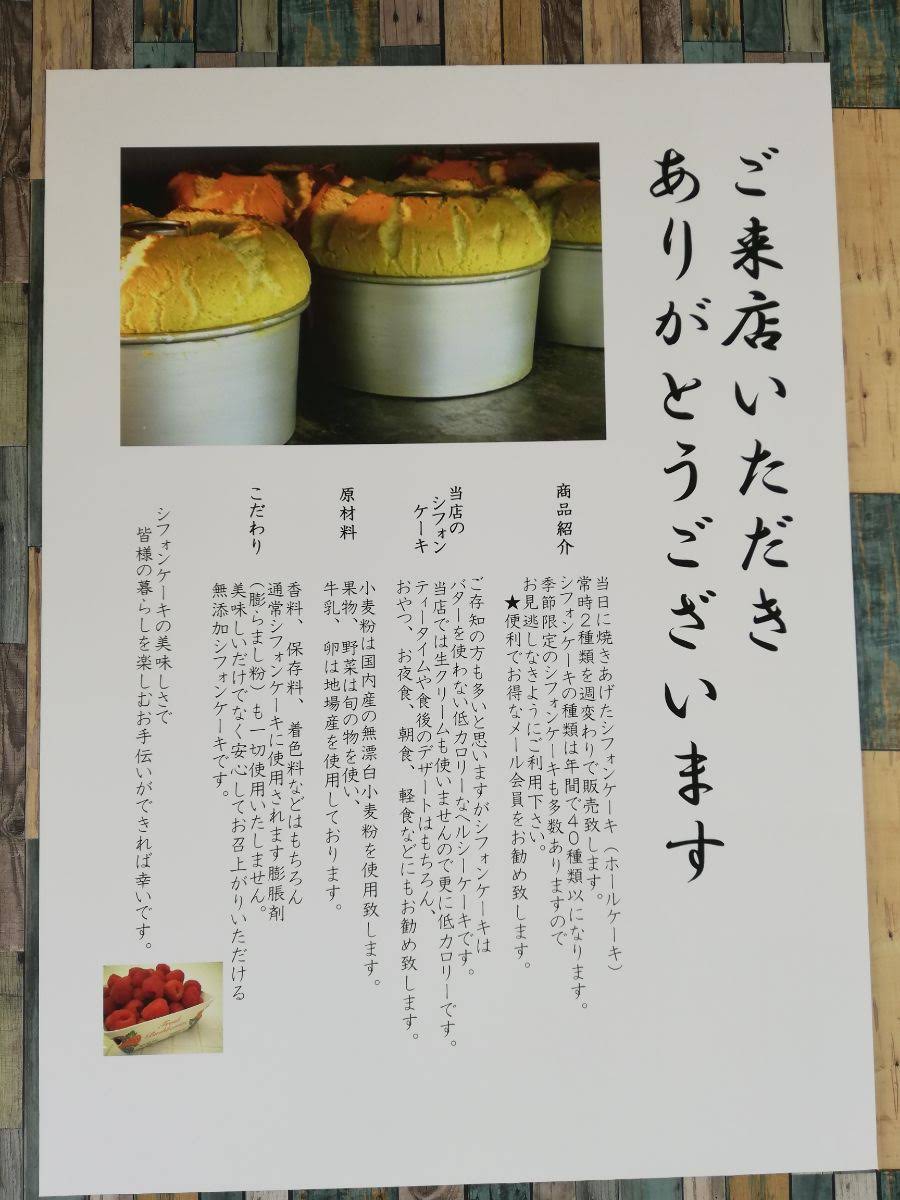 ご来店いただき
ありがとうございます
商品紹介
当日に焼きあげたシフォンケーキ（ホールケーキ）
常時2種類を週変わりで販売致します。
シフォンケーキの種類は年間で40種類以になります。
季節限定のシフォンケーキも多数ありますので
お見逃しなきようにご利用下さい。
★便利でお得なメール会員をお勧め致します。
当店の
シフォン
ケーキ
ご存知の方も多いと思いますがシフォンケーキは
バターを使わない低カロリーなヘルシーケーキです。
当店では生クリームも使いませんので更に低カロリーです。
ティータイムや食後のデザートはもちろん、
おやつ、お夜食、朝食、軽食などにもお勧め致します。
原材料
小麦粉は国内産の無漂白小麦粉を使用致します。
果物、野菜は旬の物を使い、
牛乳、卵は地場産を使用しております。
こだわり
香料、保存料、着色料などはもちろん
通常シフォンケーキに使用されます膨脹剤
（膨らまし粉）も一切使用いたしません。
美味しいだけでなく安心してお召上がりいただける
無添加シフォンケーキです。
シフォンケーキの美味しさで
皆様の暮らしを楽しむお手伝いができれば幸いです。